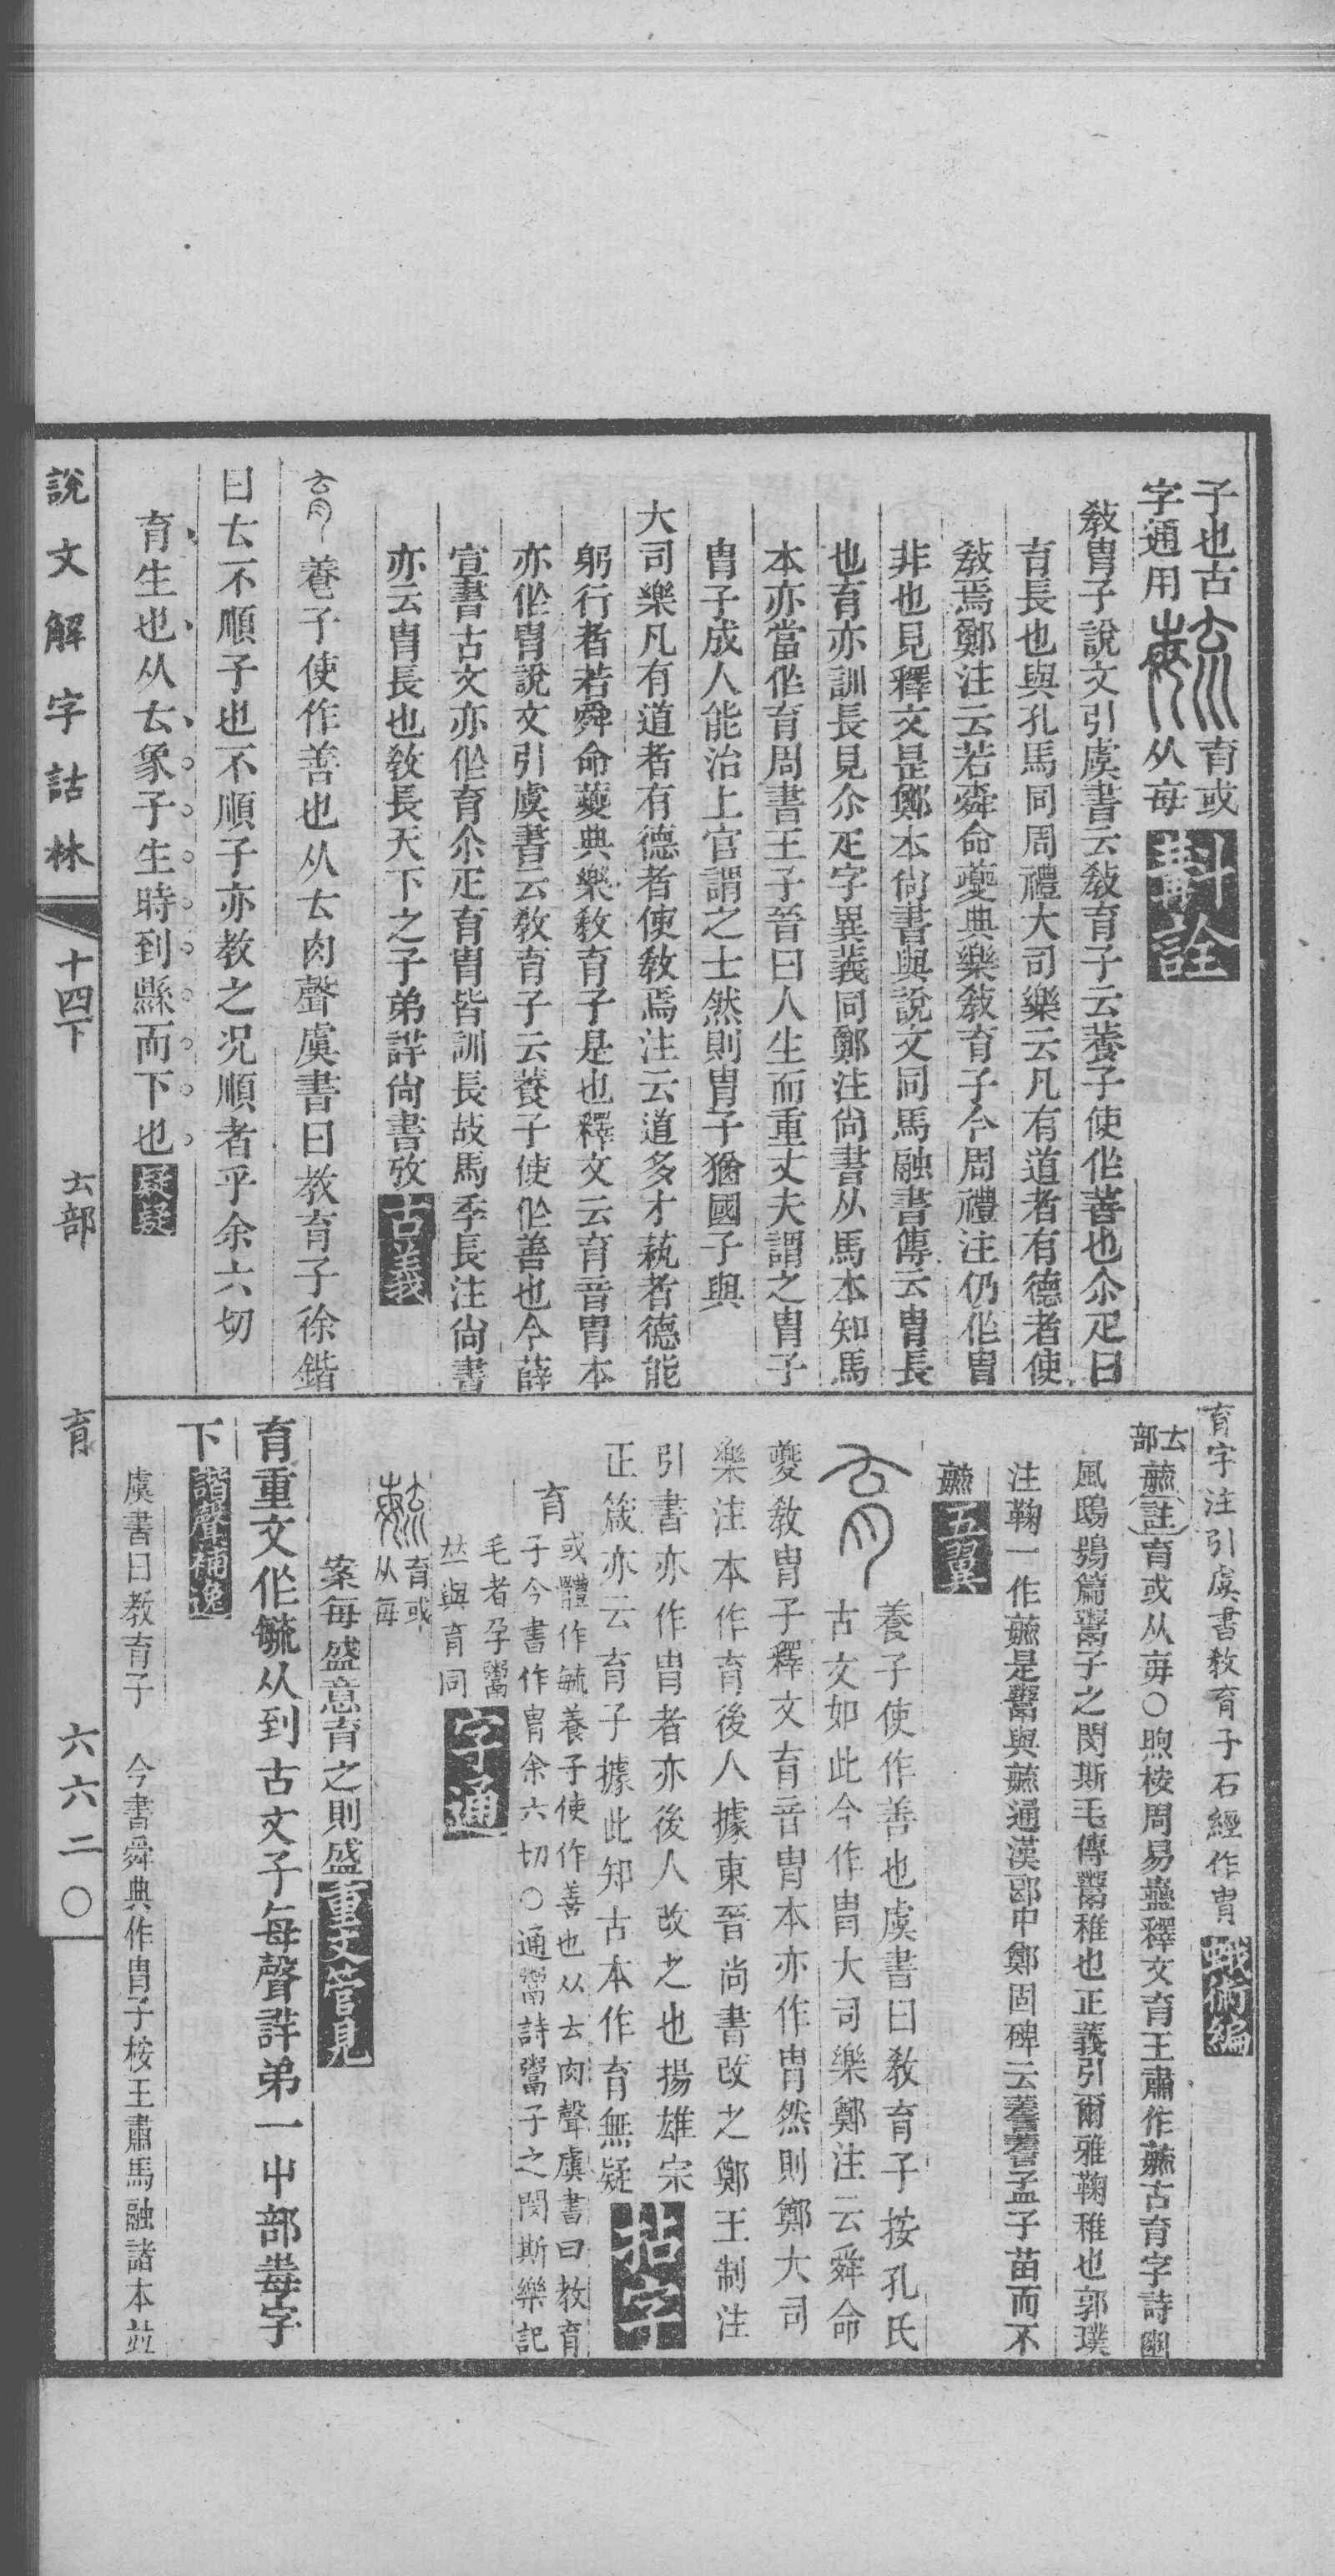 子也古
字通用
育或
从每
斠詮
敎胄子說文引虞書云敎育子云養子使作善也尒疋曰
育長也與孔馬同周禮大司樂云凡有道者有德者使
敎焉鄭注云若舜命夔典樂敎育子今周禮注仍作胄
非也見釋文是鄭本尙書與說文同馬融書傳云胄長
也育亦訓長見尒疋字異義同鄭注尙書从馬本知馬
本亦當作育周書王子晉曰人生而重丈夫謂之胄子
胄子成人能治上官謂之士然則胄子猶國子與
大司樂凡有道者有德者使敎焉注云道多才蓺者德能
躬行者若舜命夔典樂敎育子是也釋文云育音胄本
亦作胄說文引虞書云敎育子云養子使作善也今薛
宣書古文亦作育尒疋育胄皆訓長故馬季長注尙書
亦云胄長也敎長天下之子弟詳尙書攷
古義
養子使作善也从𠫓肉聲虞書曰教育子徐鍇
曰𠫓不順子也不順子亦教之况順者乎余六切
育生也从𠫓象子生時到縣而下也
疑疑
育字注引虞書敎育子石經作胄
蛾術編
𠫓部
毓(註)育或从每○煦桉周易蠱釋文育王肅作毓古育字詩豳
風鴟鴞篇鬻子之閔斯毛傳鬻稚也正義引爾雅鞠稚也郭璞
注鞠一作毓是鬻與毓通漢郎中鄭固碑云孟子苗而不
毓
五翼
養子使作善也虞書曰敎育子按孔氏
古文如此今作胄大司樂鄭注云舜命
夔敎胄子釋文育音胄本亦作胄然則鄭大司
樂注本作育後人據東晉尚書改之鄭王制注
引書亦作胄者亦後人改之也揚雄宗
正箴亦云育子據此知古本作育無疑
拈字
育
或體作毓養子使作善也从𠫓肉聲虞書曰教育
子今書作胄余六切○通鬻詩鬻子之閔斯樂記
毛者孕鬻
𠀤與育同
字通
育或
从每
案每盛意育之則盛
重文管見
育重文作毓从到古文子每聲詳弟一屮部毒字
下
諧聲補逸
虞書曰教育子　今書舜典作胄子桉王肅馬融諸本並
說文解字詁林
十四下
𠫓部
育
六六二〇